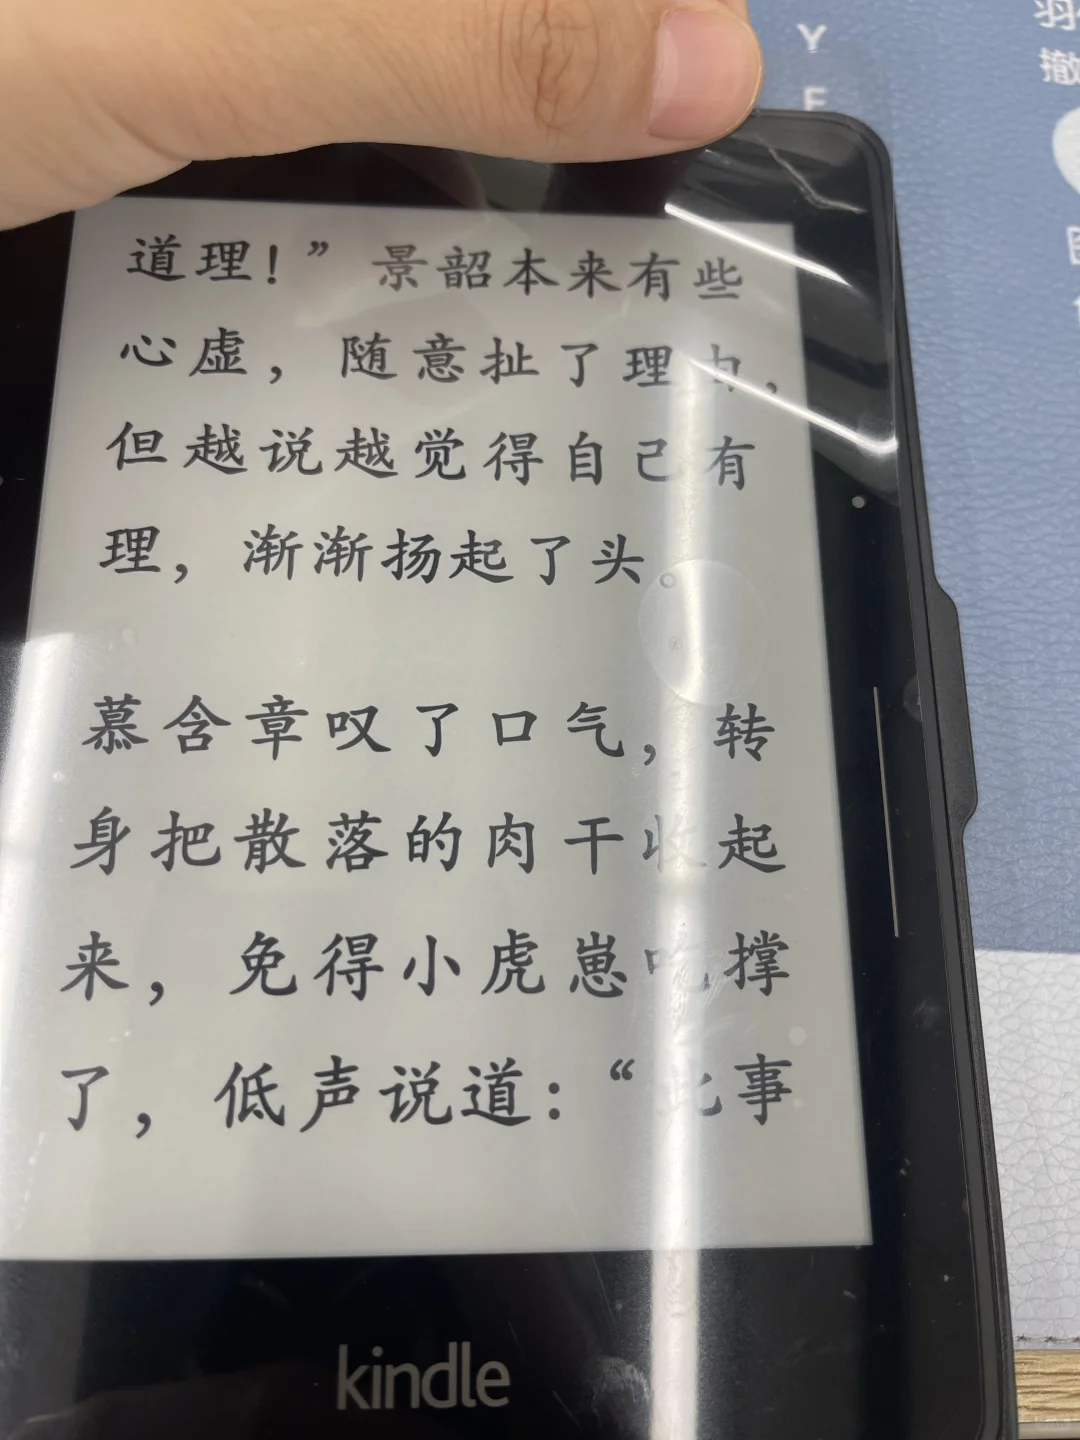 Y
E
撤
道理！”景韶本来有些
心虚，随意扯了理由，
但越说越觉得自己有
理，渐渐扬起了头。
慕含章叹了口气，转
身把散落的肉干收起
来，免得小虎崽吃撑
了，低声说道：“此事
kindle